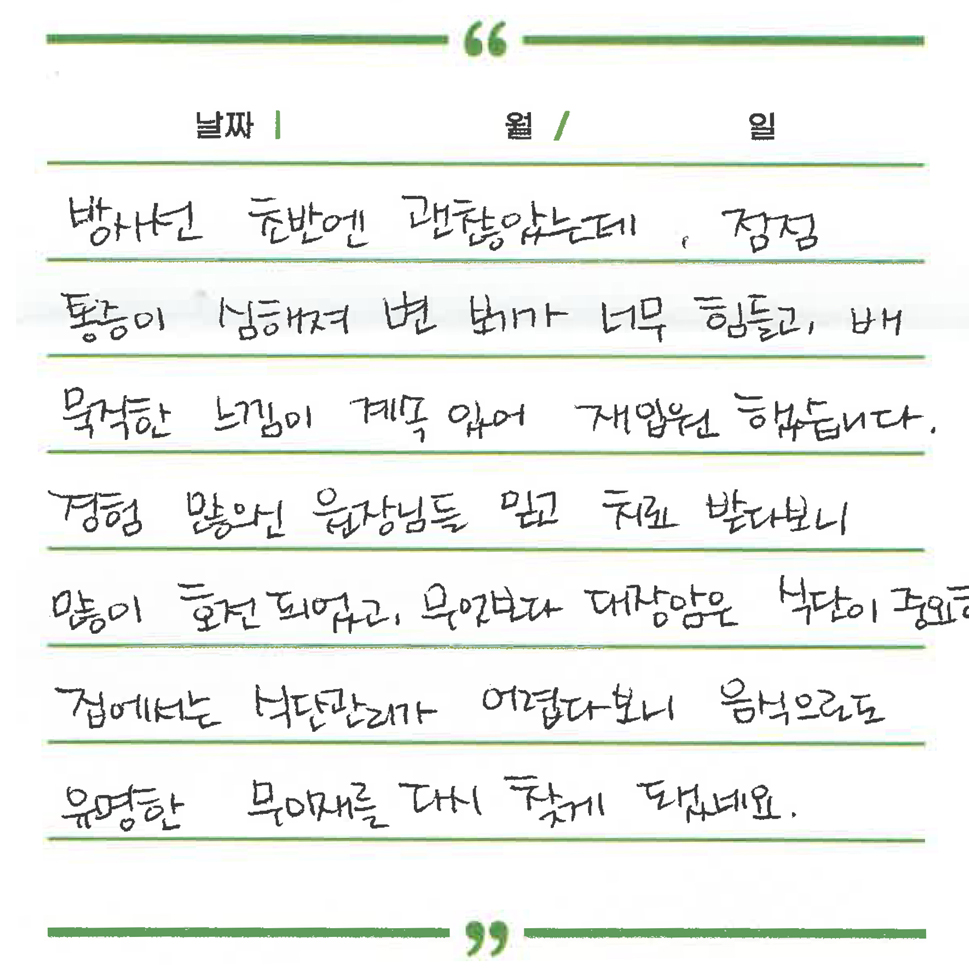 날짜 | 월 / 일
방사선 초반엔 괜찮았는데, 점점
통증이 심해져 변 보기가 너무 힘들고, 배
묵직한 느낌이 계속 있어 재입원 했습니다.
경험 많으신 원장님들 믿고 치료 받다보니
많이 호전되었고, 무엇보다 대장암은 식단이 중요한
집에서는 식단관리가 어렵다보니 음식으로도
유명한 무이재를 다시 찾게 됐네요.